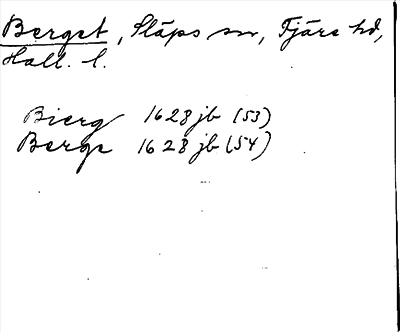 Berget, Släps sn, Fjäre hd,
Hall. l.
Bierg 1628 jb (53)
Berge 1628 jb (54)